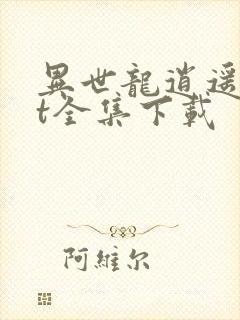 異世龍逍遥
t全集下載
阿維尔